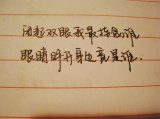 闭起双眼我最挂念谁
眼睛睁开身边竟是谁